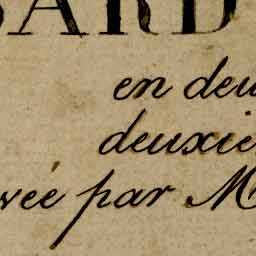 SARD
en deu
deuxie
vée par M